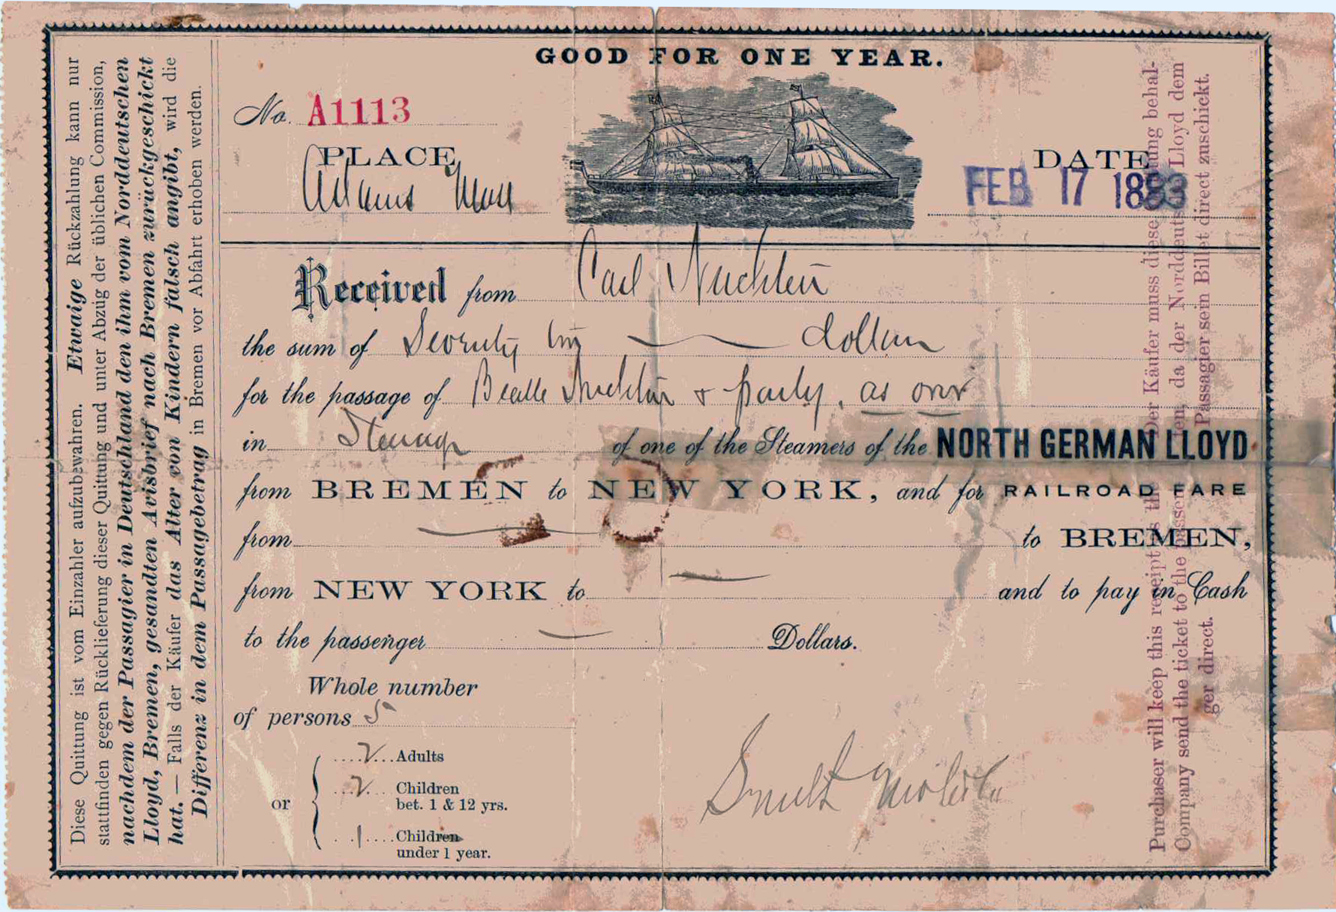 Diese Quittung ist vom Einzahler aufzubewahren. Etwaige Rückzahlung kann nur
stattfinden gegen Rücklieferung dieser Quittung und unter Abzug der üblichen Commission,
nachdem der Passagier in Deutschland den ihm vom Norddeutschen
Lloyd, Bremen, gesandten Avisbrief nach Bremen zurückgeschickt
hat. — Falls der Käufer das Alter von Kindern falsch angibt, wird die
Differenz in dem Passagebetrag in Bremen vor Abfahrt erhoben werden.
GOOD FOR ONE YEAR.
No. A1113
PLACE
Adams Mass
DATE
FEB 17 1883
Received from Carl
the sum of Seventy dollars
for the passage of & party, as over
in Steerage of one of the Steamers of the NORTH GERMAN LLOYD
from BREMEN to NEW YORK, and for RAILROAD FARE
from to BREMEN,
from NEW YORK to and to pay in Cash
to the passenger Dollars.
Whole number
of persons 5
or
2 Adults
2 Children
bet. 1 & 12 yrs.
1 Children
under 1 year.
Smith
Purchaser will keep this receipt as the Der Käufer muss diese behal-
Company send the ticket to the passen ten, da der Norddeuts Lloyd dem
ger direct. Passagier sein Billet direct zuschickt.